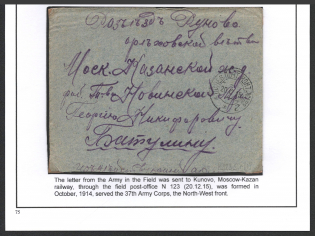 Разъѣздъ Куново
Моск. Казанской ж. д.
Новинской
Георгію Никифоровичу
Батулину
The letter from the Army in the Field was sent to Kunovo, Moscow-Kazan
railway, through the field post-office N 123 (20.12.15), was formed in
October, 1914, served the 37th Army Corps, the North-West front.
75